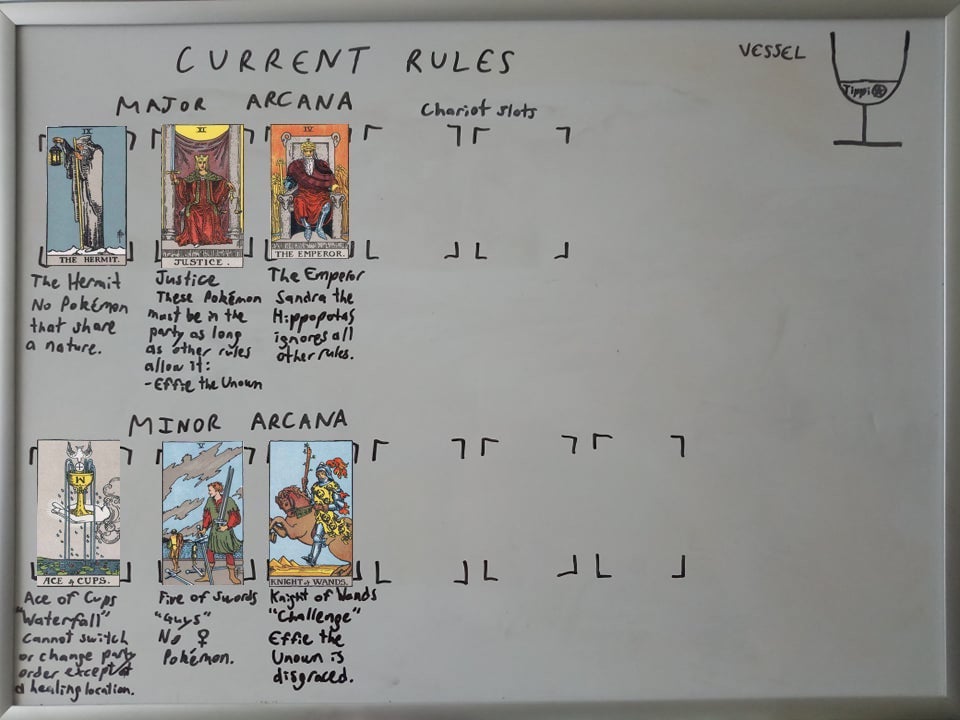 CURRENT RULES
VESSEL
Tippi
MAJOR ARCANA
Chariot slots
IX
THE HERMIT.
XI
JUSTICE.
IV
THE EMPEROR.
The Hermit
No Pokémon
that share
a nature.
Justice
These Pokémon
must be in the
party as long
as other rules
allow it:
-Effie the Unown
The Emperor
Sandra the
Hippopotas
ignores all
other rules.
MINOR ARCANA
ACE of CUPS.
V
KNIGHT of WANDS.
Ace of Cups
"Waterfall"
Cannot switch
or change party
order except at
a healing location.
Five of Swords
"Guys"
No ♀
Pokémon.
Knight of Wands
"Challenge"
Effie the
Unown is
disgraced.